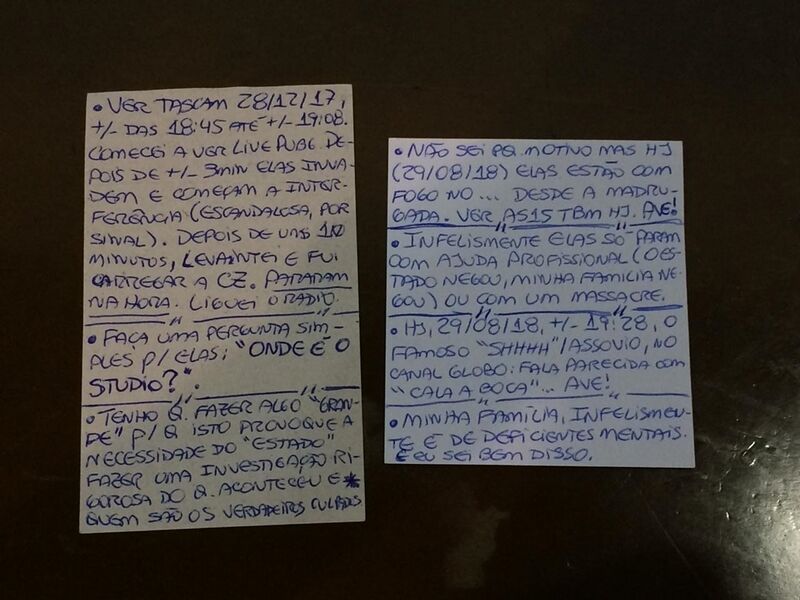 • VER TASCAM 28/12/17,
+/- DAS 18:45 ATÉ +/- 19:08.
COMECEI A VER LIVE PUBG DE-
POIS DE +/- 3min ELAS INVA-
DEM E COMEÇAM A INTER-
FERÊNCIA (ESCANDALOSA, POR
SINAL). DEPOIS DE UNS 10
MINUTOS, LEVANTEI E FUI
CARREGAR A CZ. PARARAM
NA HORA. LIGUEI O RADIO.
• FAÇA UMA PERGUNTA SIM-
PLES P/ ELAS: "ONDE É O
STUDIO?".
• TENHO Q. FAZER ALGO "GRAN-
DE" P/ Q ISTO PROVOQUE A
NECESSIDADE DO "ESTADO"
FAZER UMA INVESTIGAÇÃO RI-
GOROSA DO Q. ACONTECEU E
QUEM SÃO OS VERDADEIROS CULPADOS
• NÃO SEI PQ. MOTIVO MAS HJ
(29/08/18) ELAS ESTÃO COM
FOGO NO... DESDE A MADRU-
GADA. VER AS15 TBM HJ. AVE!
• INFELISMENTE ELAS SÓ PARAM
COM AJUDA PROFISSIONAL (O ES-
TADO NEGOU, MINHA FAMILIA NE-
GOU) OU COM UM MASSACRE.
• HJ, 29/08/18, +/- 19:28, O
FAMOSO "SHHHH"/ASSOVIO, NO
CANAL GLOBO: FALA PARECIDA COM
"CALA A BOCA"... AVE!
• MINHA FAMÍLIA, INFELISMEN-
TE É DE DEFICIENTES MENTAIS.
E EU SEI BEM DISSO.